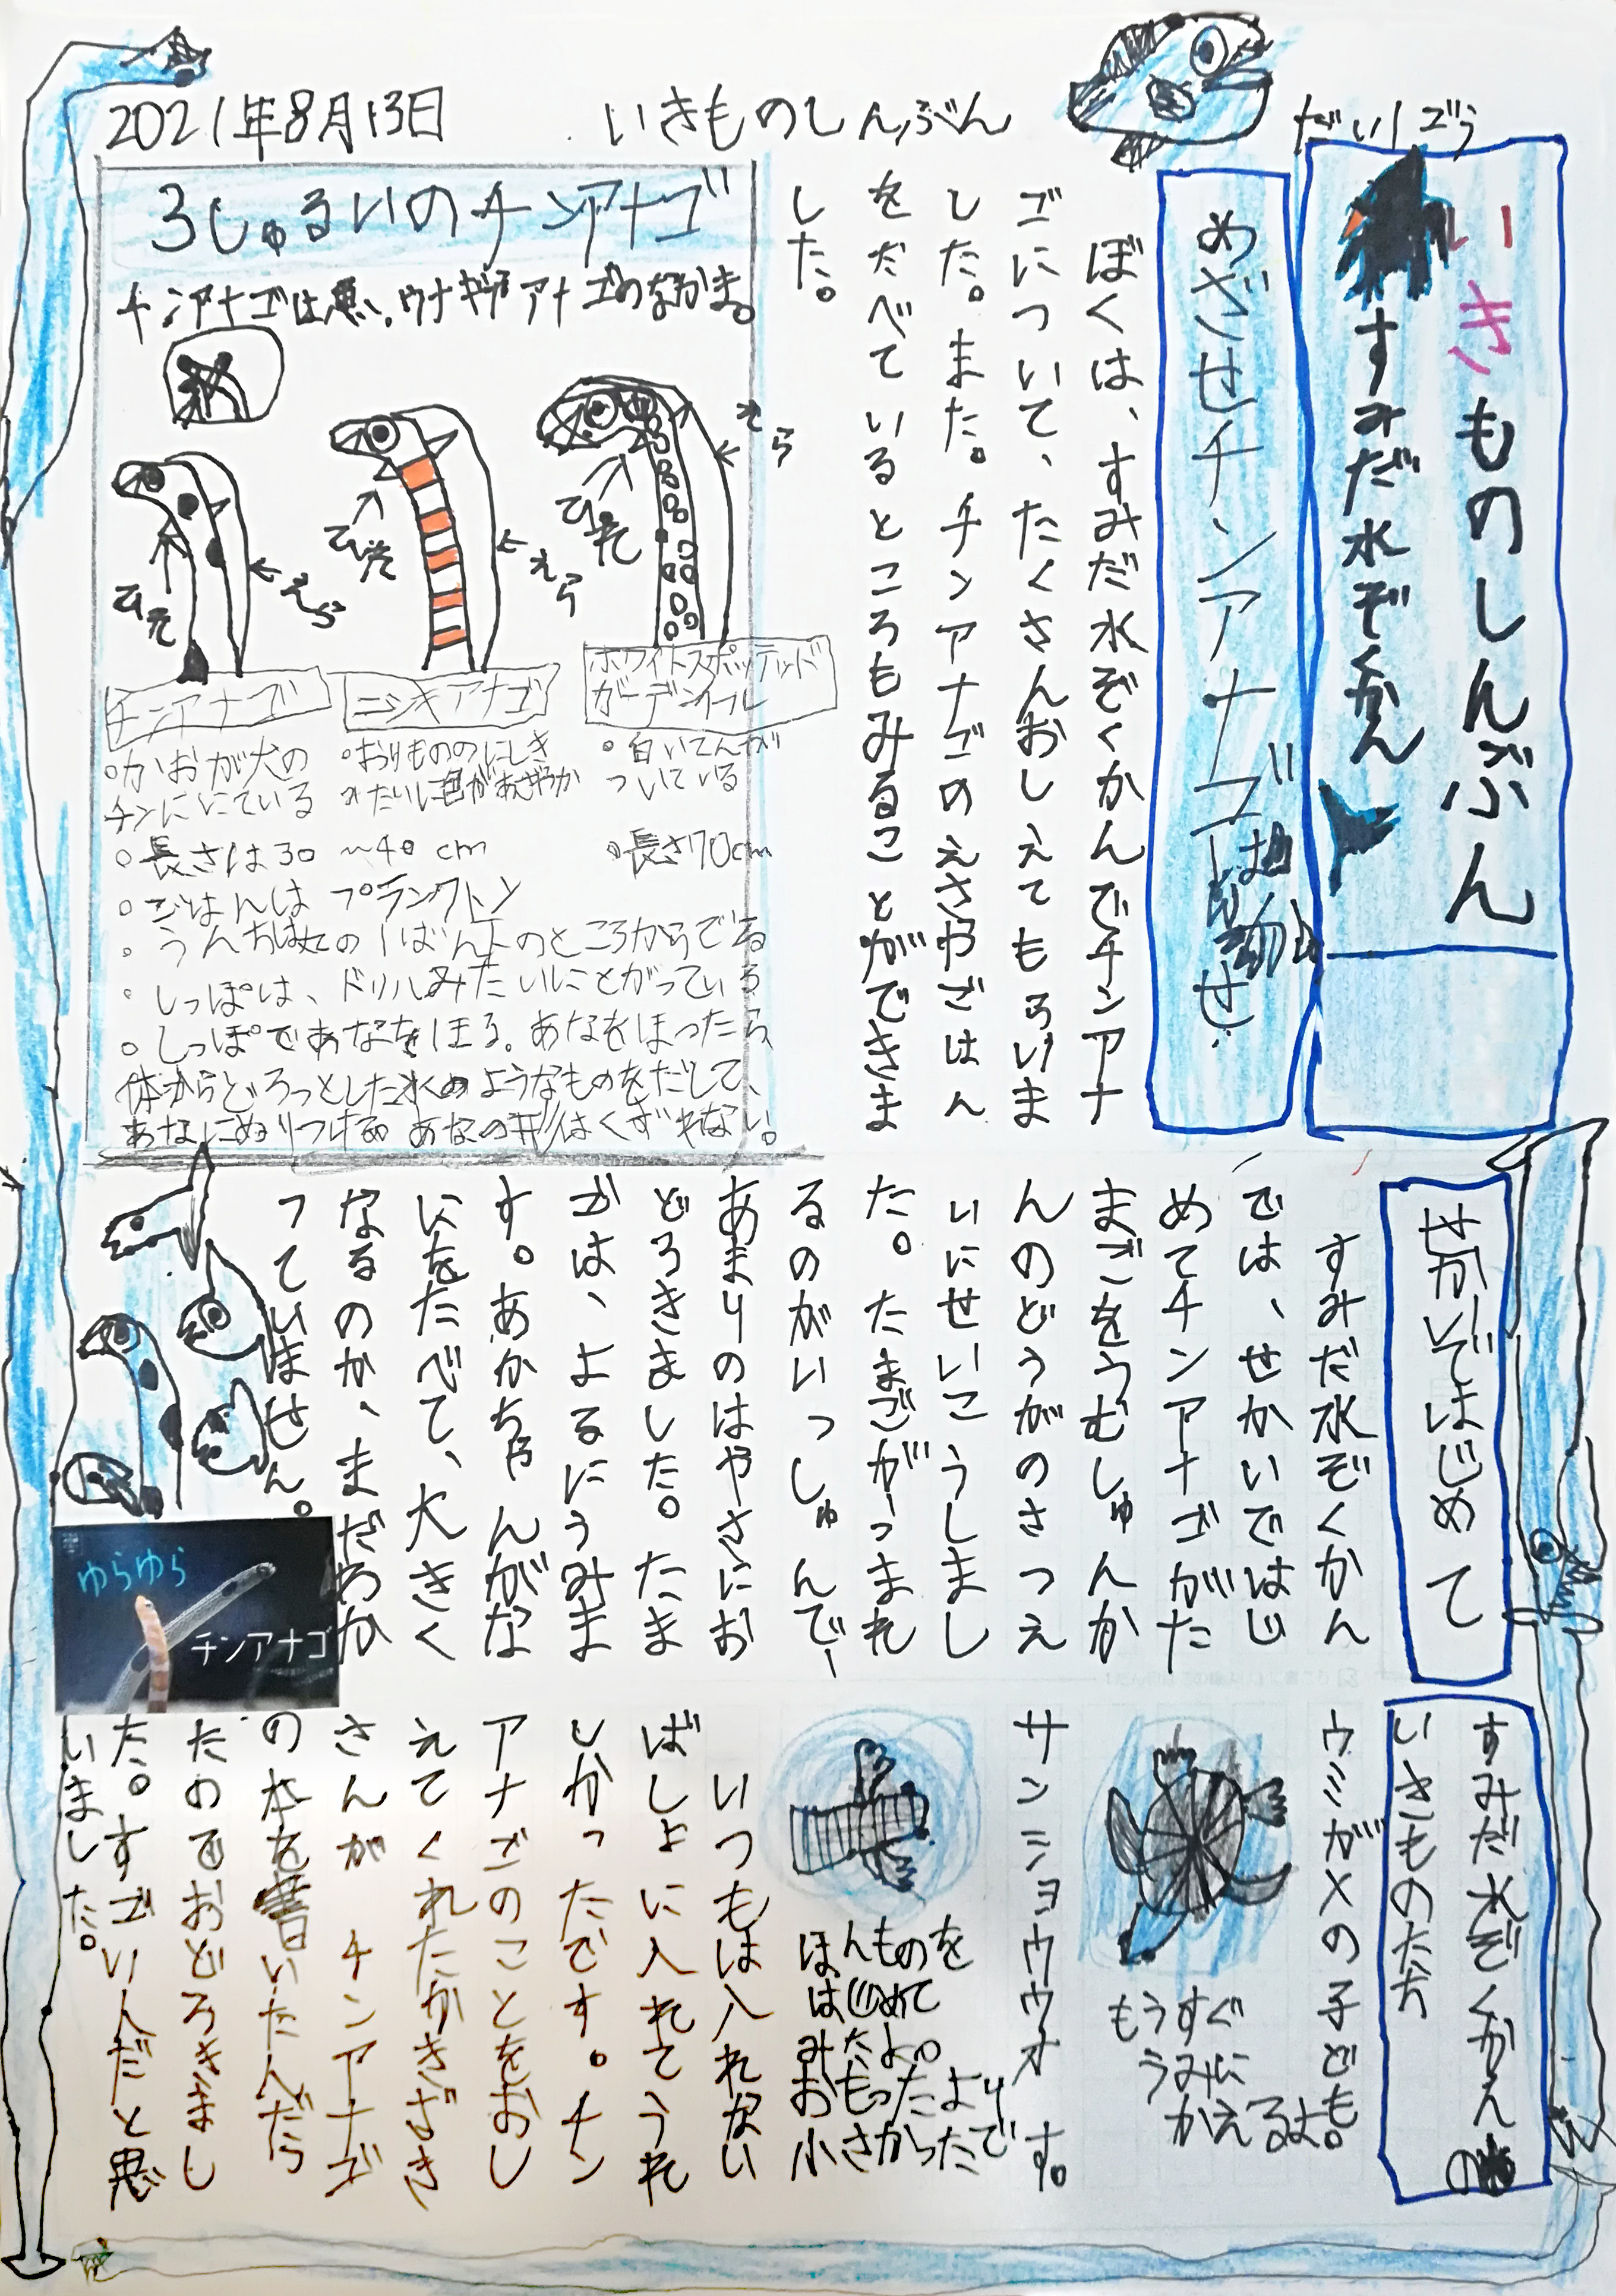 2021年8月13日
いきものしんぶん
だい1ごう
いきものしんぶん
すみだ水ぞくかん
めざせチンアナゴ
ぼくは、すみだ水ぞくかんでチンアナ
ゴについて、たくさんおしえてもらいま
した。また。チンアナゴのえさやごはん
をたべているところもみることができま
した。
3しゅるいのチンアナゴ
チンアナゴは魚、ウナギやアナゴのなかま。
えら
えら
えら
チンアナゴ
ニシキアナゴ
ホワイトスポッテッド
ガーデンイール
・かおが犬の
チンににている
・おりもののにしき
みたいに色があざやか
・白いてんが
ついている
・長さは30〜40cm
・長さ70cm
・ごはんはプランクトン
・うんちは女の1ばん下のところからでる
・しっぽは、ドリルみたいにとがっている
・しっぽであなをほる。あなをほったら
体からどろっとした水のようなものをだして、
あなにぬりつける あなの形はくずれない。
せかいではじめて
すみだ水ぞくかん
では、せかいではじ
めてチンアナゴがた
まごをうむしゅんか
んのどうがのさつえ
いにせいこうしまし
た。たまごがうまれ
るのがいっしゅんで、
あまりのはやさにお
どろきました。たま
ごは、よるにうみま
す。あかちゃんがな
にをたべて、大きく
なるのか、まだわか
っていません。
ゆらゆら
チンアナゴ
すみだ水ぞくかんの
いきものたち
ウミガメの子ども。
もうすぐ
うみに
かえるよ。
サンショウウオです。
ほんものを
はじめて
みたよ。
おもったより
小さかったで
いつもは入れない
ばしょに入れてうれ
しかったです。チン
アナゴのことをおし
えてくれたかきざき
さんが チンアナゴ
の本を書いた人だっ
たのでおどろきまし
た。すごい人だと思
いました。